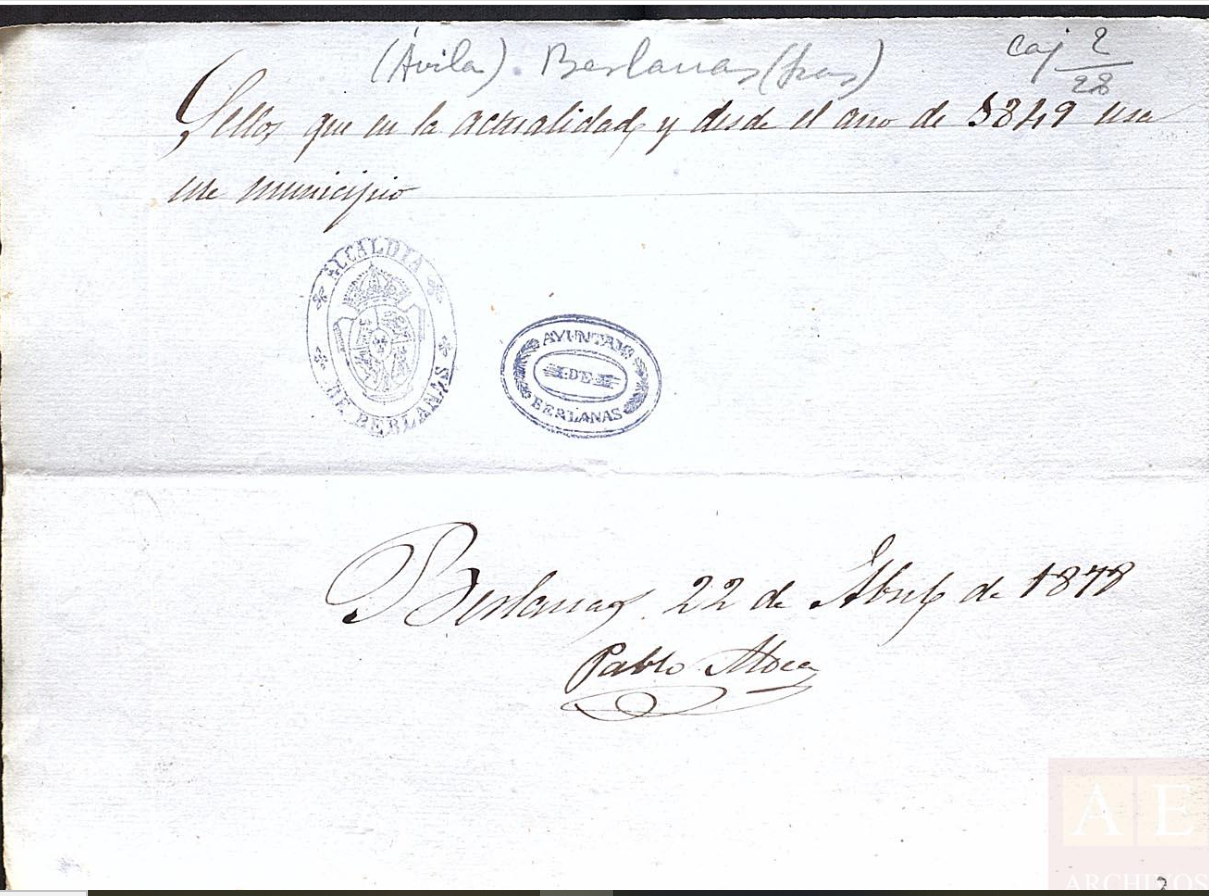 (Ávila). Berlanas (Las)
caj 2
28
Sellos que en la actualidad y desde el año de 1849 usa
este municipio
ALCALDIA
DE BERLANAS
AYUNTAMº
DE
BERLANAS
Berlanas 22 de Abril de 1878
Pablo
AE
ARCHIVOS